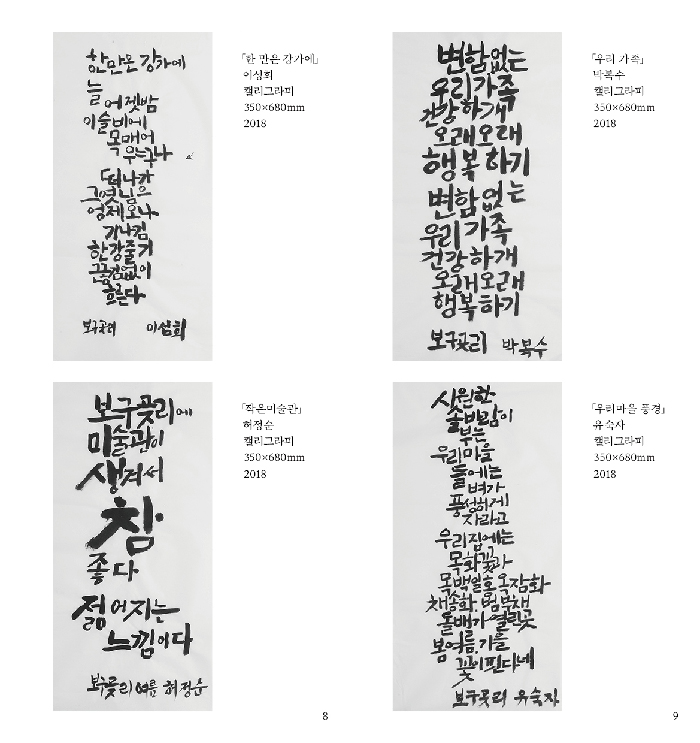 한 많은 강가에
늘
어젯밤
이슬비에
목매어
우누나
떠나가
그옛님은
언제오나
기나긴
한강줄기
끈킴없이
흐른다
보구곶리 이섬희
「한 많은 강가에」
이섬희
캘리그라피
350×680mm
2018
변함없는
우리가족
건강하개
오래오래
행복하기
변함없는
우리가족
건강하개
오래오래
행복하기
보구곶리 박복수
「우리 가족」
박복수
캘리그라피
350×680mm
2018
보구곶리에
미술관이
생겨서
참
좋다
젊어지는
느낌이다
보구곶리 여름 허정순
「작은미술관」
허정순
캘리그라피
350×680mm
2018
시원한
솔바람이
부는
우리마을
들에는
벼가
풍성하게
자라고
우리집에는
목화꽃과
목백일홍 옥잠화
채송화. 범부채
돌배가 열린곳
봄여름.가을
꽃이핀다네
보구곶리 유숙자
「우리마을 풍경」
유숙자
캘리그라피
350×680mm
2018
8
9